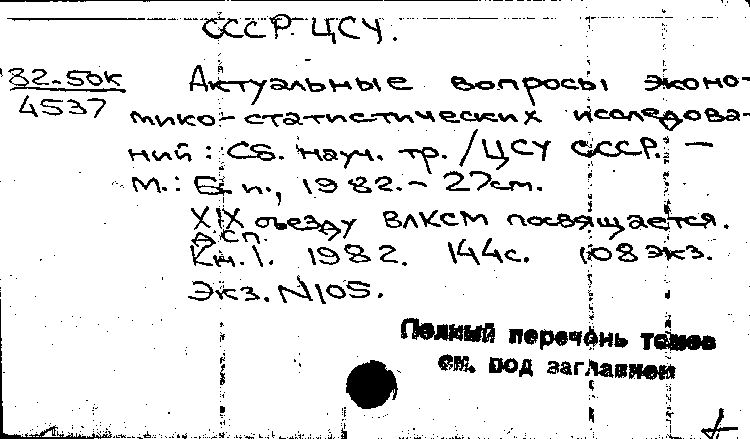 СССР. ЦСУ.
82-50к
4537
Актуальные вопросы эконо-
мико-статистических исследова-
ний: Сб. науч. тр. / ЦСУ СССР. —
М.: Б. и., 1982. - 27см.
XIX съезду ВЛКСМ посвящается.
ДСП.
Кн. 1. 1982. 144с. 108 экз.
Экз. N105.
Полный перечень томов
см. под заглавием